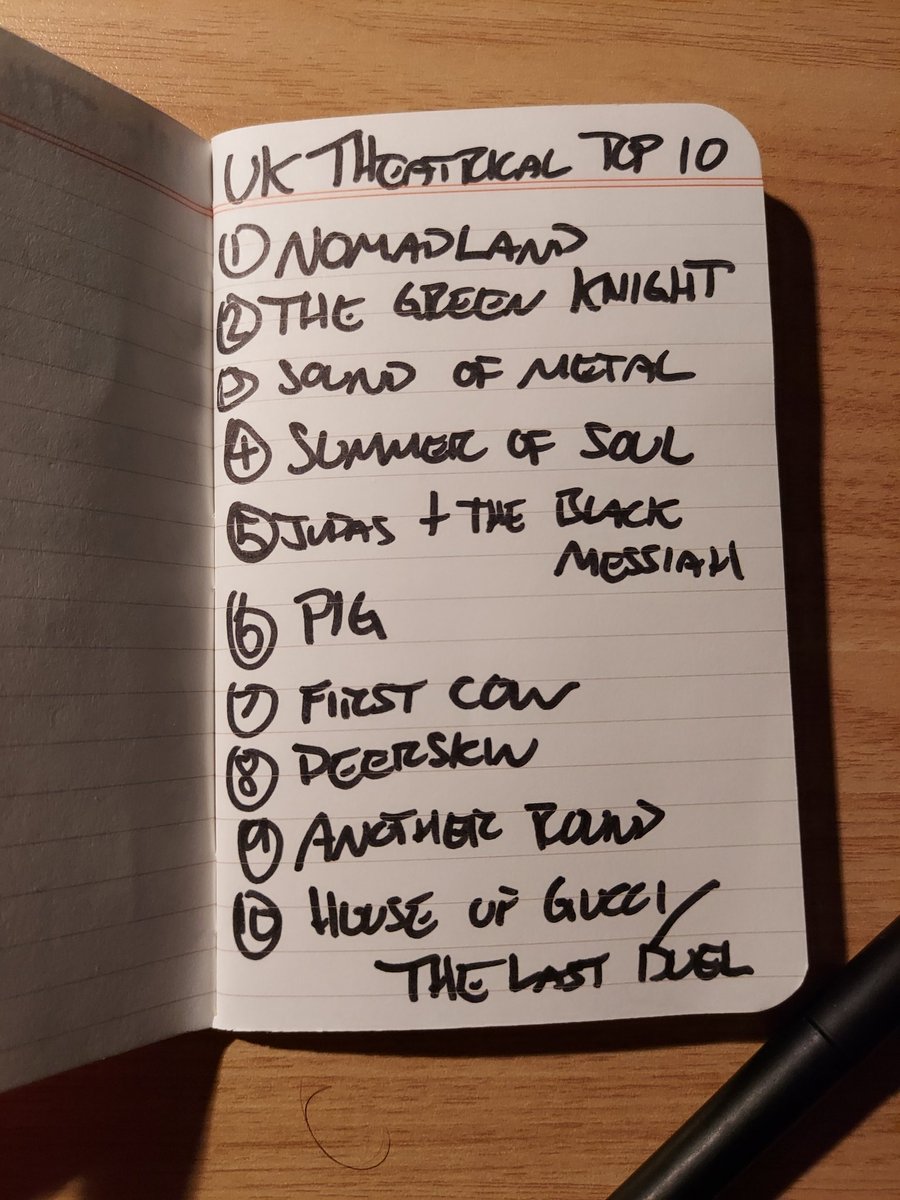 UK THEATRICAL TOP 10
① NOMADLAND
② THE GREEN KNIGHT
③ SOUND OF METAL
④ SUMMER OF SOUL
⑤ JUDAS + THE BLACK
MESSIAH
⑥ PIG
⑦ FIRST COW
⑧ DEERSKIN
⑨ ANOTHER ROUND
⑩ HOUSE OF GUCCI/
THE LAST DUEL